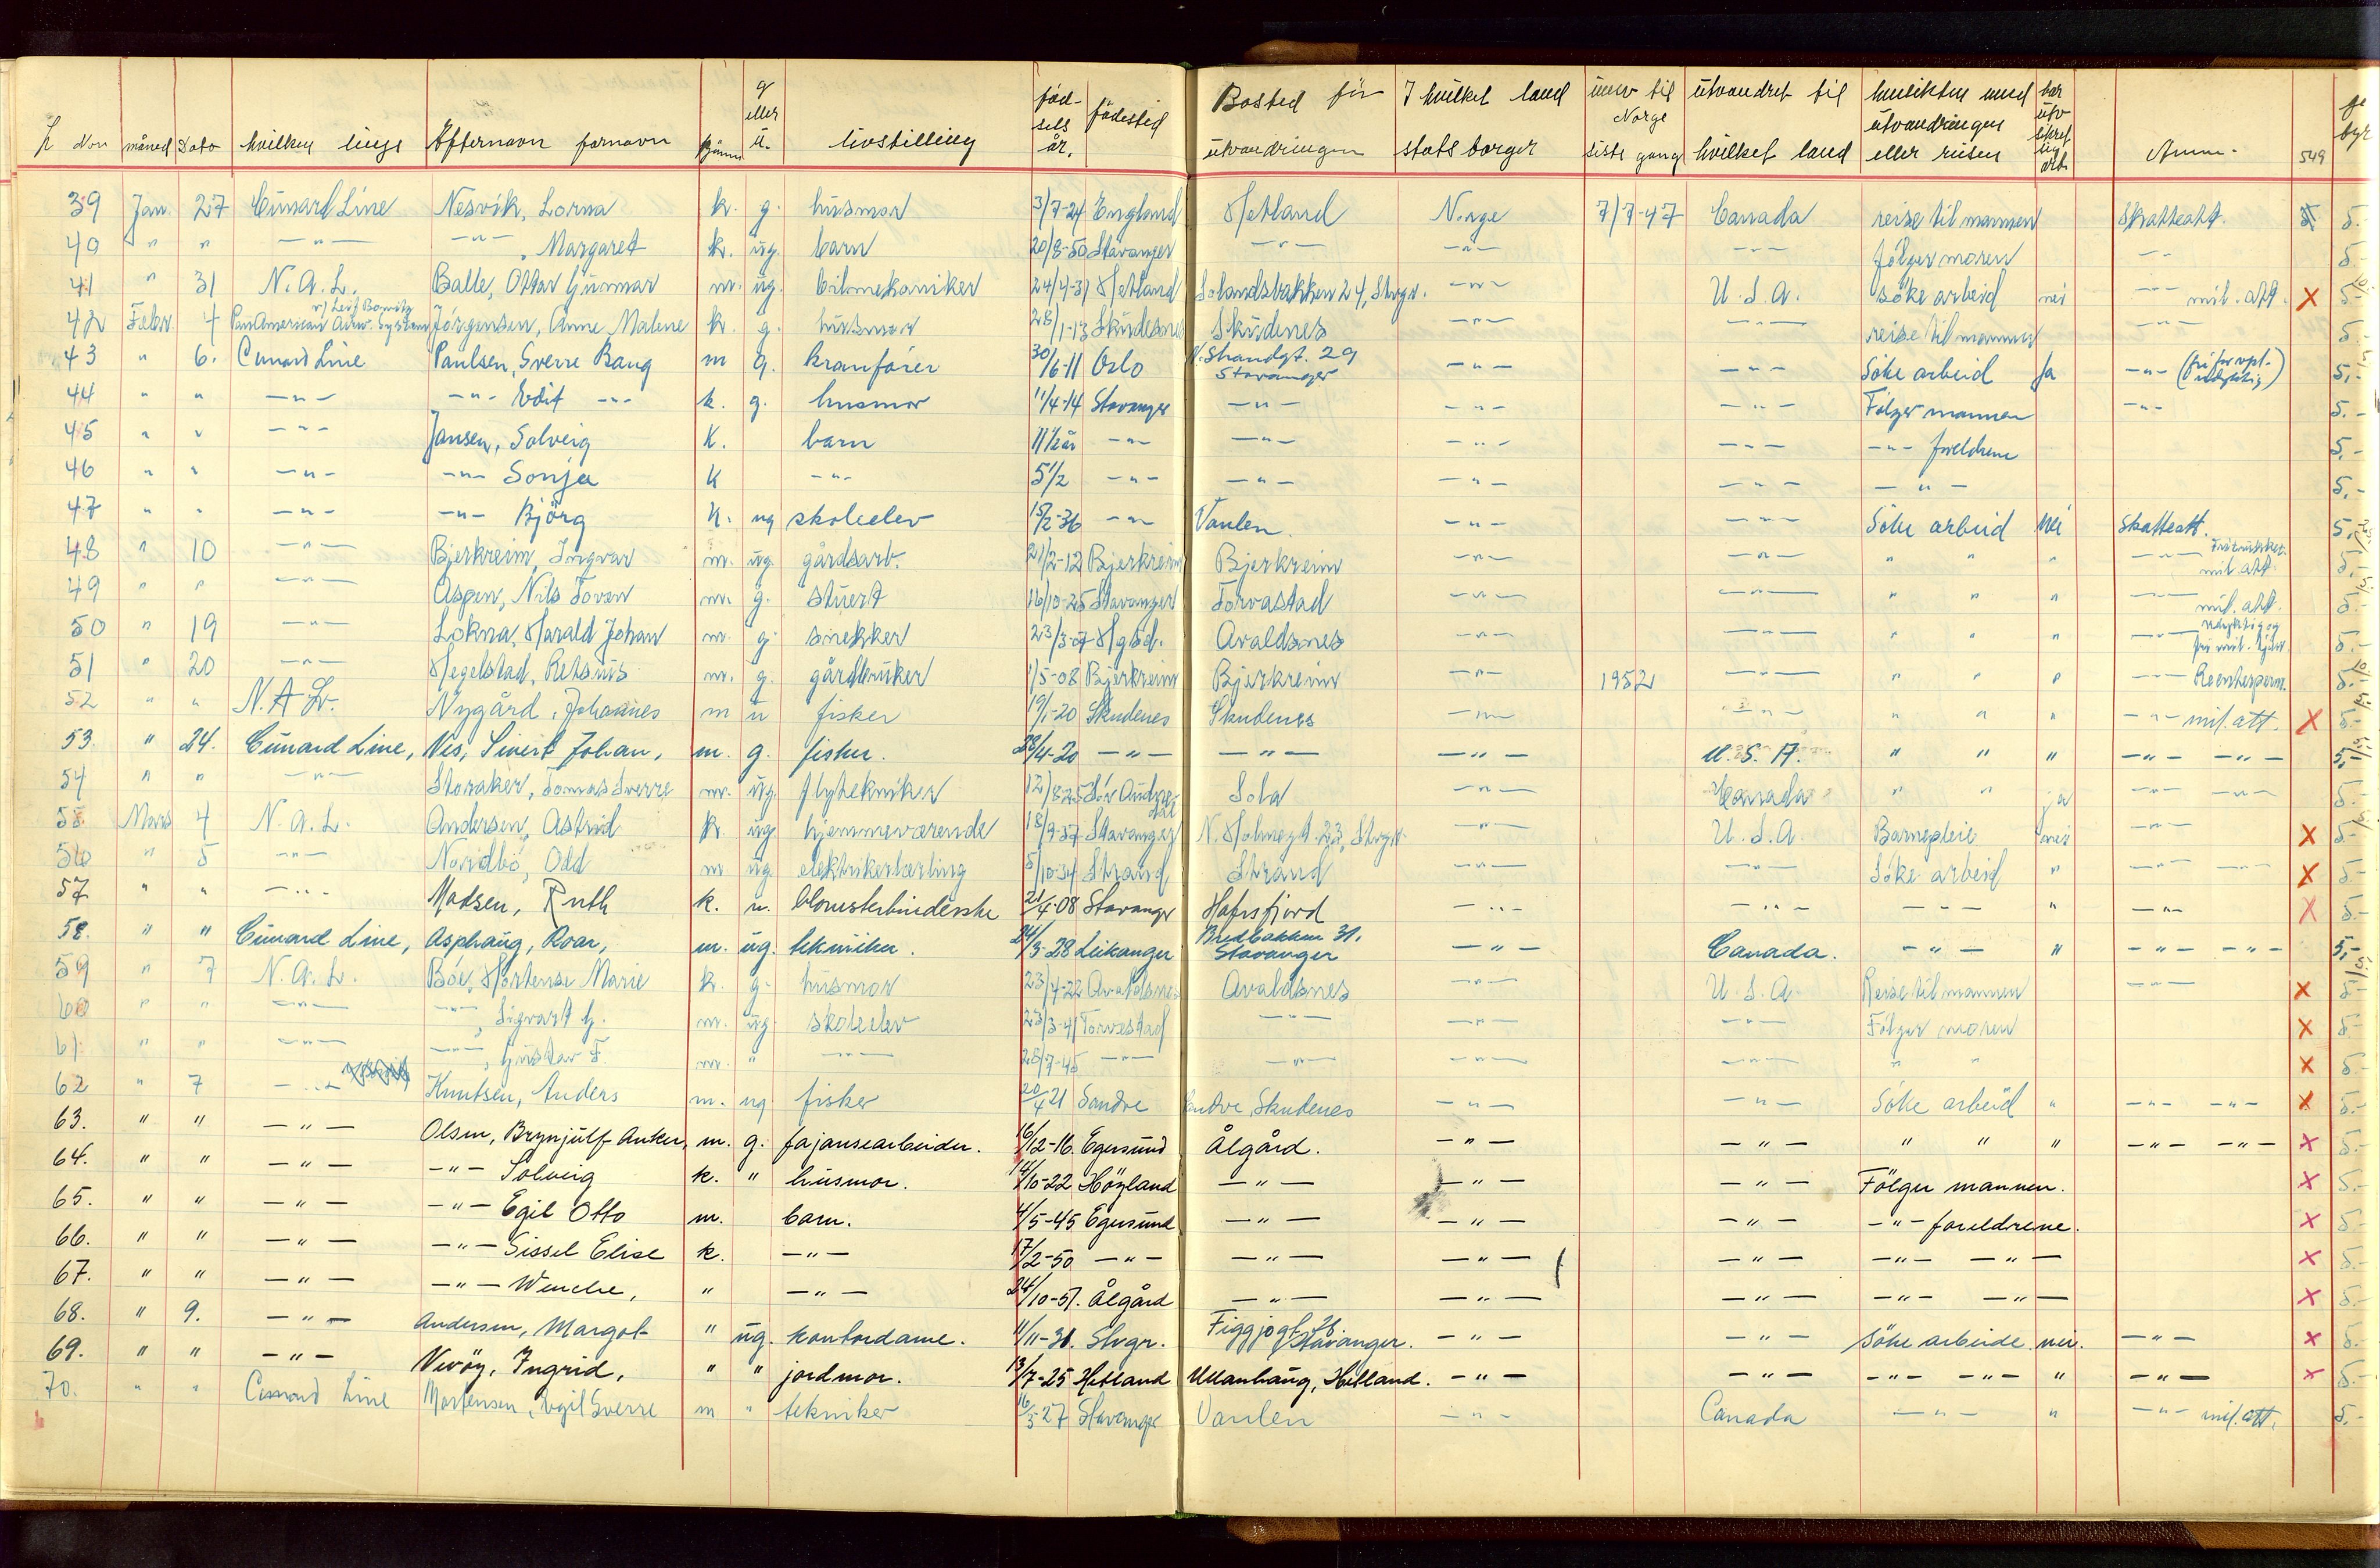 L Nor måned Dato hvilken linje Efternavn fornavn kjønn g eller u. livsstilling fød-sels år. fødested Bosted før utvandringen I hvilket land statsborger innv til Norge siste gang utvandret til hvilket land hensikten med utvandringen eller reisen har utv sikret sig arb Anm. 549
39 Jan 27 Cunard Line Nesvik, Lorna k. g. husmor 3/7-24 England Hetland Norge 7/7-47 Canada reise til mannen Skatteatt. 5.-
40 " " -"- -"- , Margaret k. ug. barn 20/8-50 Stavanger -"- -"- -"- følger moren -"- 5.-
41 " 31 N.A.L. Balle, Ottar Gunnar m. ug. bilmekaniker 24/4-31 Hetland Solandsbakken 24, Stvgr. -"- U.S.A. søke arbeid nei -"- mil. att. X 5.-
42 Febr. 4 Pan American Airw. System v/ Leif Jörgensen, Anne Malene k. g. husmor 28/1-13 Skudesnes Skudenes -"- -"- reise til mannen -"- 5.-
43 " 6. Cunard Line Paulsen, Sverre Bang m g. kranfører 30/6-11 Oslo N. Strandgt. 29 Stavanger -"- -"- Søke arbeid Ja -"- (fri for vpl. udyktig) 5.-
44 " " -"- -"- Edit -"- k. g. husmor 11/4-14 Stavanger -"- -"- -"- Følger mannen -"- 5.-
45 " " -"- Jansen, Solveig K. barn 11 1/2 år -"- -"- -"- -"- -"- foreldrene 5.-
46 " " -"- -"- Sonja K -"- 5 1/2 -"- -"- -"- -"- -"- 5.-
47 " " -"- -"- Björg K. ug skoleelev 15/2-36 -"- Vaulen. -"- -"- Söke arbeid nei Skatteatt. 5.-
48 " 10 -"- Bjerkreim, Ingvar m. ug. gårdsarb. 21/2-12 Bjerkreim Bjerkreim -"- -"- " " " -"- mil. att. 5.-
49 " " -"- Aspen, Nils Tovan m. g. stuert 16/10-25 Stavanger Torvastad -"- -"- " " " -"- mil. att. 5.-
50 " 19 -"- Lokna, Harald Johan m. g. snekker 23/3-07 Hgsd. Avaldsnes -"- -"- " " " -"- udyktig og fri mil. tj. 5.-
51 " 20 -"- Hegelstad, Retsius m. g. gårdbruker 1/5-08 Bjerkreim Bjerkreim -"- 1952 -"- " " " -"- 5.-
52 " " N.A.L. Nygård, Johannes m u fisker 19/1-20 Skudenes Skudenes -"- -"- " " " -"- mil. att. X 5.-
53. " 24. Cunard Line, Nes, Sivert Johan, m. g. fisker. 28/4-20 -"- -"- -"- U.S.A. " " " -"- -"- 5.-
54 " " -"- Storaker, Tomas Sverre m. ug. flytekniker 12/8-25 Sör Audnedal Sola -"- Canada " " ja -"- -"- 5.-
55. Mars 4 N.A.L. Andersen, Astrid k. ug. hjemmeværende 18/9-37 Stavanger N. Holmegt. 23, Stvgr. -"- U.S.A. Barnepleie nei -"- X 5.-
56 " 5 -"- Nordbö, Odd m ug. elektrikerlærling 5/10-34 Strand Strand -"- -"- Söke arbeid " -"- -"- X 5.-
57 " " -"- Madsen, Ruth k. u. blomsterbinderske 21/4-08 Stavanger Hafrsfjord -"- -"- -"- " -"- X 5.-
58. " " Cunard Line, Asphaug, Roar, m. ug. tekniker. 24/3-28 Leikanger Bredbakken 31. Stavanger -"- Canada. -"- " -"- -"- 5.-
59 " 7 N.A.L. Böe, Hortense Marie k. g. husmor 23/4-22 Avaldsnes Avaldsnes -"- U.S.A. Reise til mannen -"- X 5.-
60 " " -"- -"- , Sigvart G. m. ug. skoleelev 23/3-41 Torvestad -"- -"- -"- Følger moren X 5.-
61 " " -"- -"- , Gustav F. m. " -"- 28/7-45 -"- -"- -"- -"- " " X 5.-
62 " 7 -"- Knutsen, Anders m. ug fisker 20/4 21 Sandve Sandve, Skudenes -"- -"- Söke arbeid " -"- -"- X 5.-
63. " " -"- Olsen, Brynjulf Anker, m. g. fajansearbeider. 16/12-16. Egersund Ålgård. -"- -"- " " " -"- -"- X 5.-
64. " " -"- -"- Solveig k. " husmor. 14/10-22 Höyland -"- -"- -"- Fölger mannen. X 5.-
65. " " -"- -"- Egil Otto m. barn. 4/5-45 Egersund -"- -"- -"- -"- foreldrene. X 5.-
66. " " -"- -"- Sissel Elise k. -"- 17/2-50 -"- -"- -"- -"- -"- -"- X 5.-
67. " " -"- -"- Wenche, " -"- 24/10-51. Ålgård -"- -"- -"- -"- -"- X 5.-
68. " 9. -"- Andersen, Margot " ug. kontordame. 11/11-31. Stvgr. Figgjogt. Stavanger. -"- -"- söke arbeide nei. -"- X 5.-
69. " " -"- Nevöy, Ingrid, " " jordmor. 13/7-25 Hetland Ullanhaug, Hetland. -"- -"- -"- -"- " -"- X 5.-
70. " " Cunard Line Mortensen, Egil Sverre m " tekniker 16/5-27 Stavanger Vaulen -"- Canada -"- " -"- mil. att. 5.-